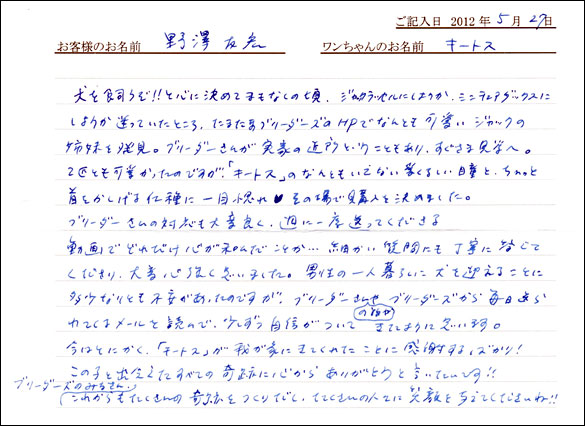 ご記入日 2012年 5月 27日
お客様のお名前 野澤 友宏 ワンちゃんのお名前 キートス
犬を飼うぞ!!と心に決めてまもなしの頃、ジャックラッセルにしようか、ミニチュアダックスに
しようか迷っていたところ、たまたまブリーダーズのHPでなんとも可愛いジャックの
姉妹を発見。ブリーダーさんが実家の近所ということもあり、すぐさま見学へ。
2匹とも可愛かったのですが、「キートス」のなんともいえない愛くるしい目と、ちょっと
首をかしげる仕種に一目惚れ♥その場で購入を決めました。
ブリーダーさんの対応も大変良く、週に一度送ってくださる
動画でどれだけ心が和んだことか…細かい質問にも丁寧に答えて
くださり、大変心強く思いました。男性の一人暮らしに犬を迎えることに
多少なりとも不安があったのですが、ブリーダーさんやブリーダーズから毎日送ら
れてくるメールを読んで、少しずつ自信がついてきたように思います。
の皆さん
今はとにかく、「キートス」が我が家にきてくれたことに感謝するばかり!
この子と出会えたすべての奇跡に心からありがとうと言いたいです!!
ブリーダーズのみなさん、
これからもたくさんの奇跡をつくりだし、たくさんの人々に笑顔を与えてくださいね!!